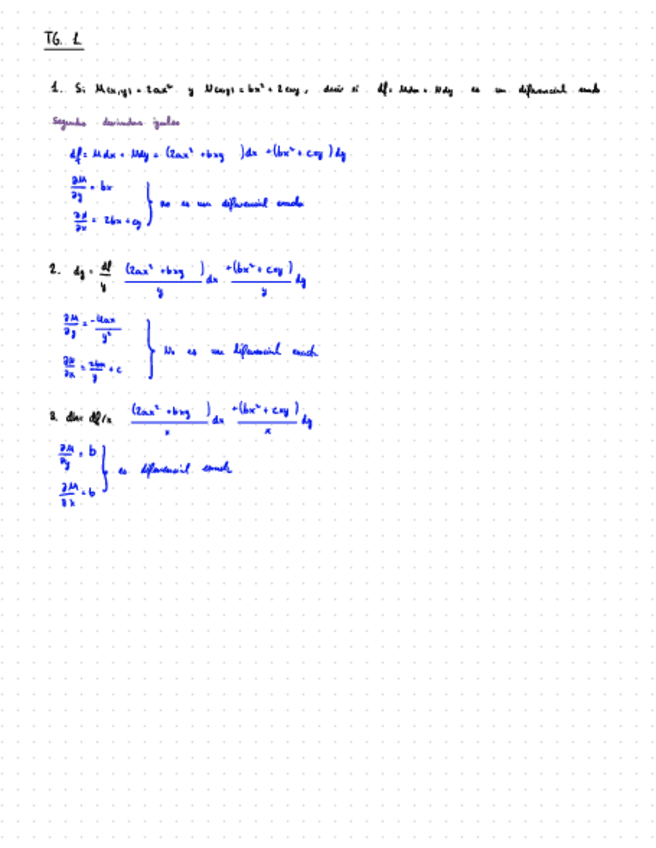 TG. 1
1. Si M(x,y) = 2ax² y N(x,y) = bx² + 2cxy, decir si df = Mdx + Ndy es un diferencial exacto
Segundas derivadas iguales
df = Mdx + Ndy = (2ax² + bxy )dx + (bx² + cxy )dy
∂M/∂y = bx
∂N/∂x = 2bx + cy } no es un diferencial exacto
2. dg = df/y (2ax² + bxy )/y dx + (bx² + cxy )/y dy
∂M/∂y = -4ax/y²
∂N/∂x = 2bx/y + c } No es un diferencial exacto
3. dh = df/x (2ax² + bxy )/x dx + (bx² + cxy )/x dy
∂M/∂y = b
∂M/∂x = b } es diferencial exacto